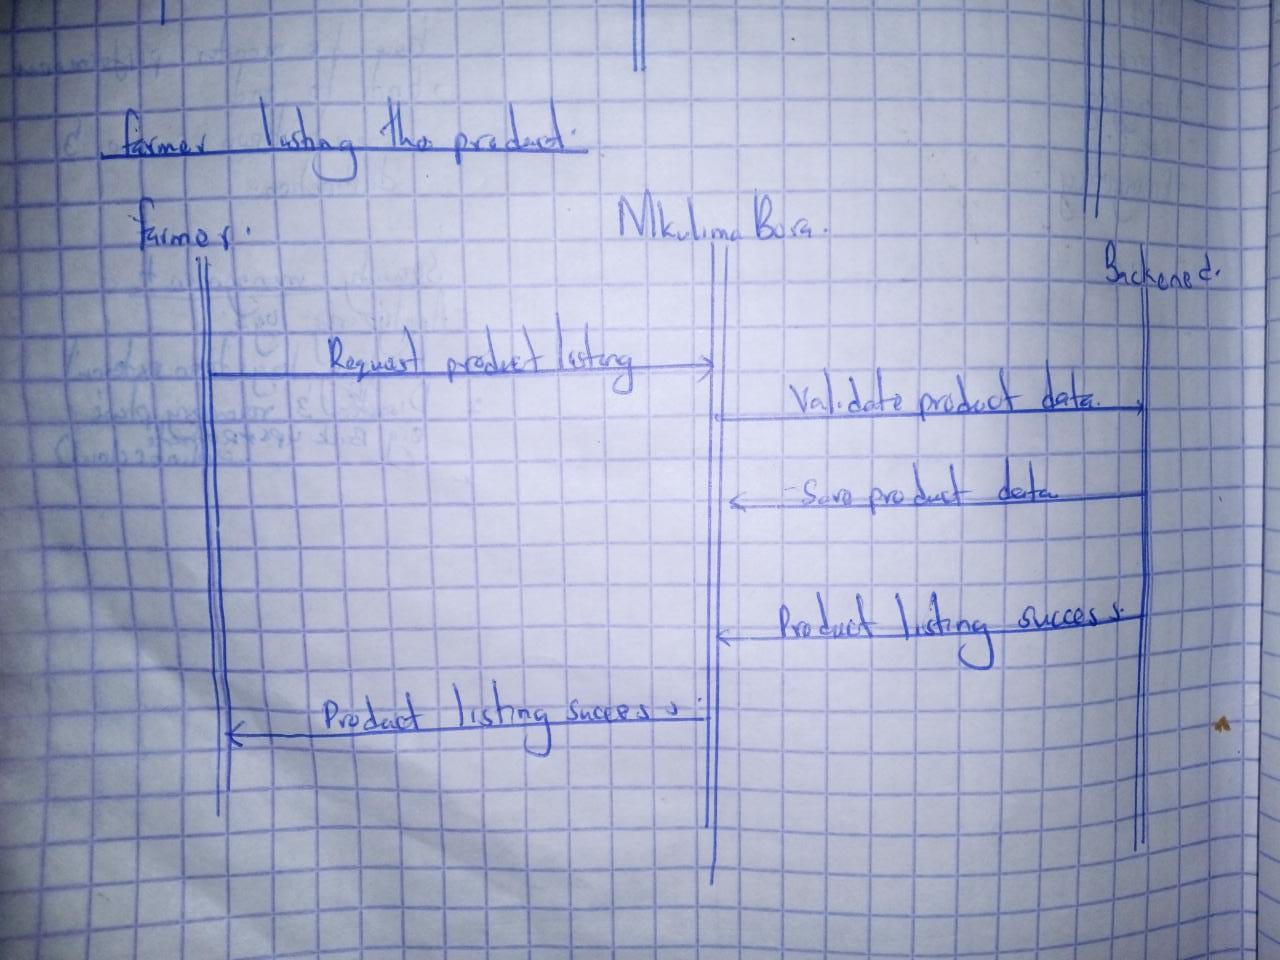 farmer listing the product.
farmer.
Mkulima Bora.
Backened.
Request product listing
Validate product data.
Save product data
Product listing success.
Product listing success.